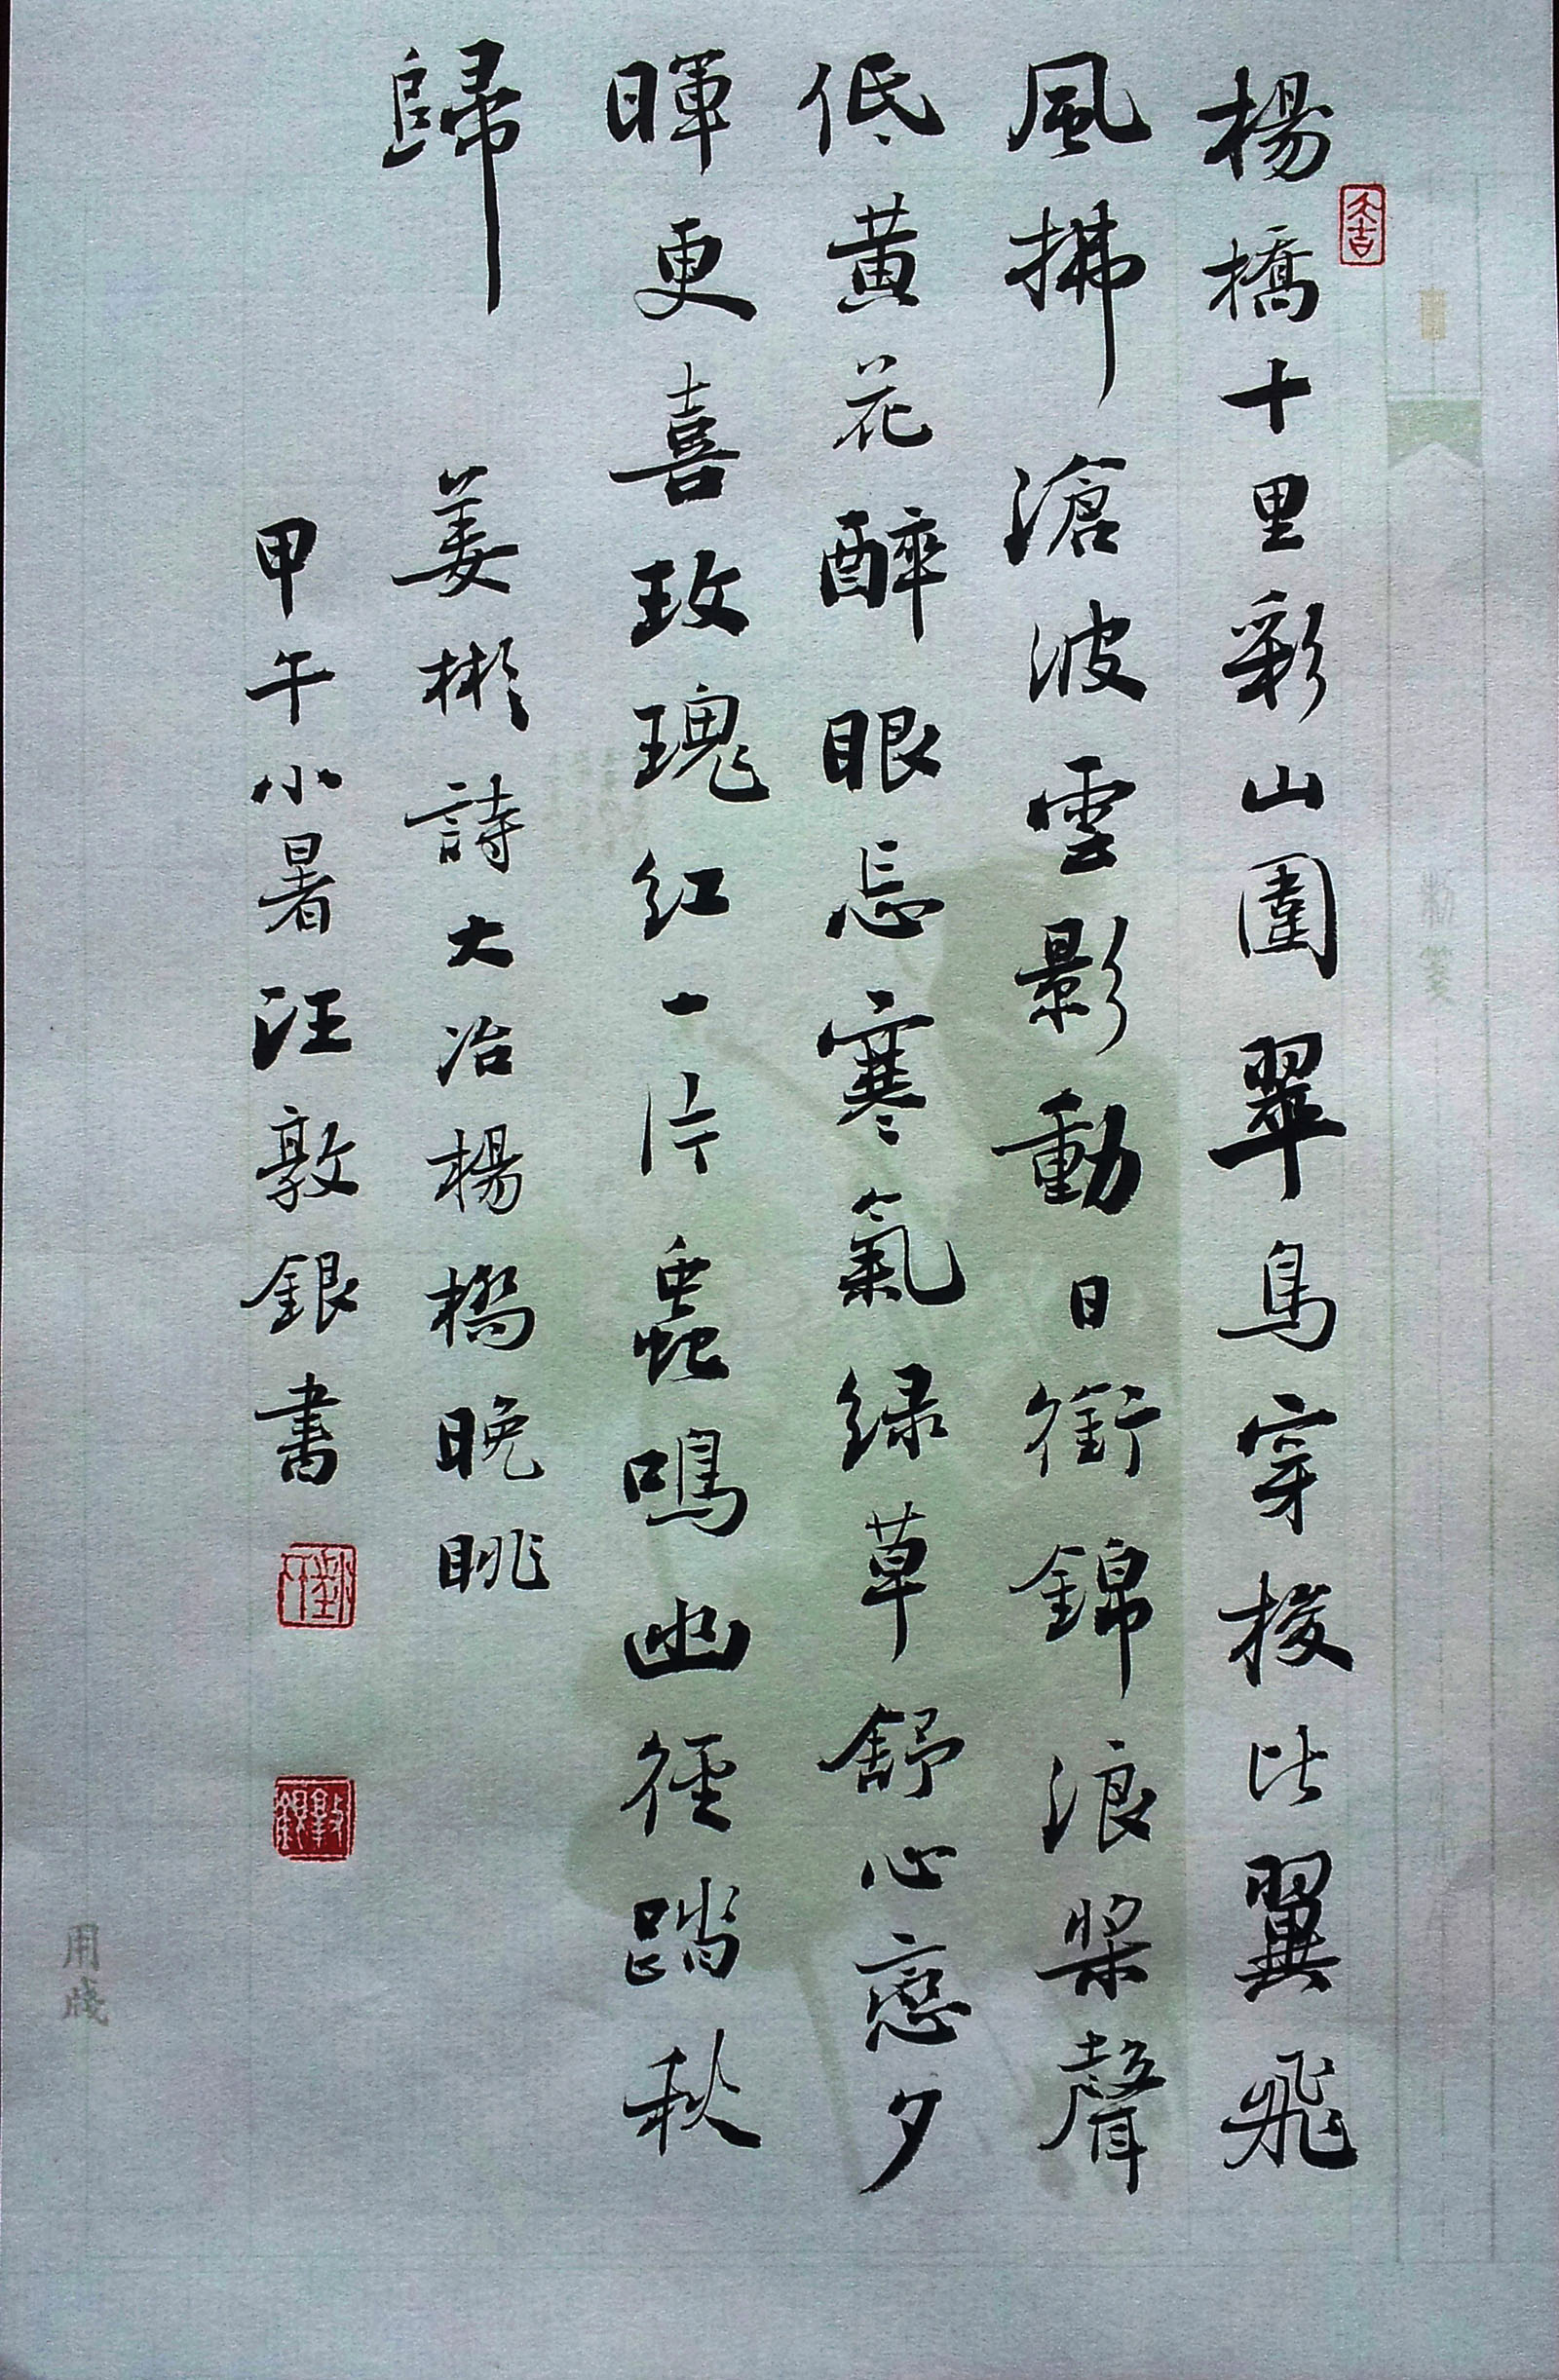 楊橋十里彩山圍翠鳥穿梭比翼飛
風拂滄波雲影動日銜錦浪槳聲
低黄花醉眼忘寒氣绿草舒心戀夕
暉更喜玫瑰红一片蟲鳴幽徑踏秋
歸
姜彬詩大冶楊橋晚眺
甲午小暑汪敦銀書
用箋